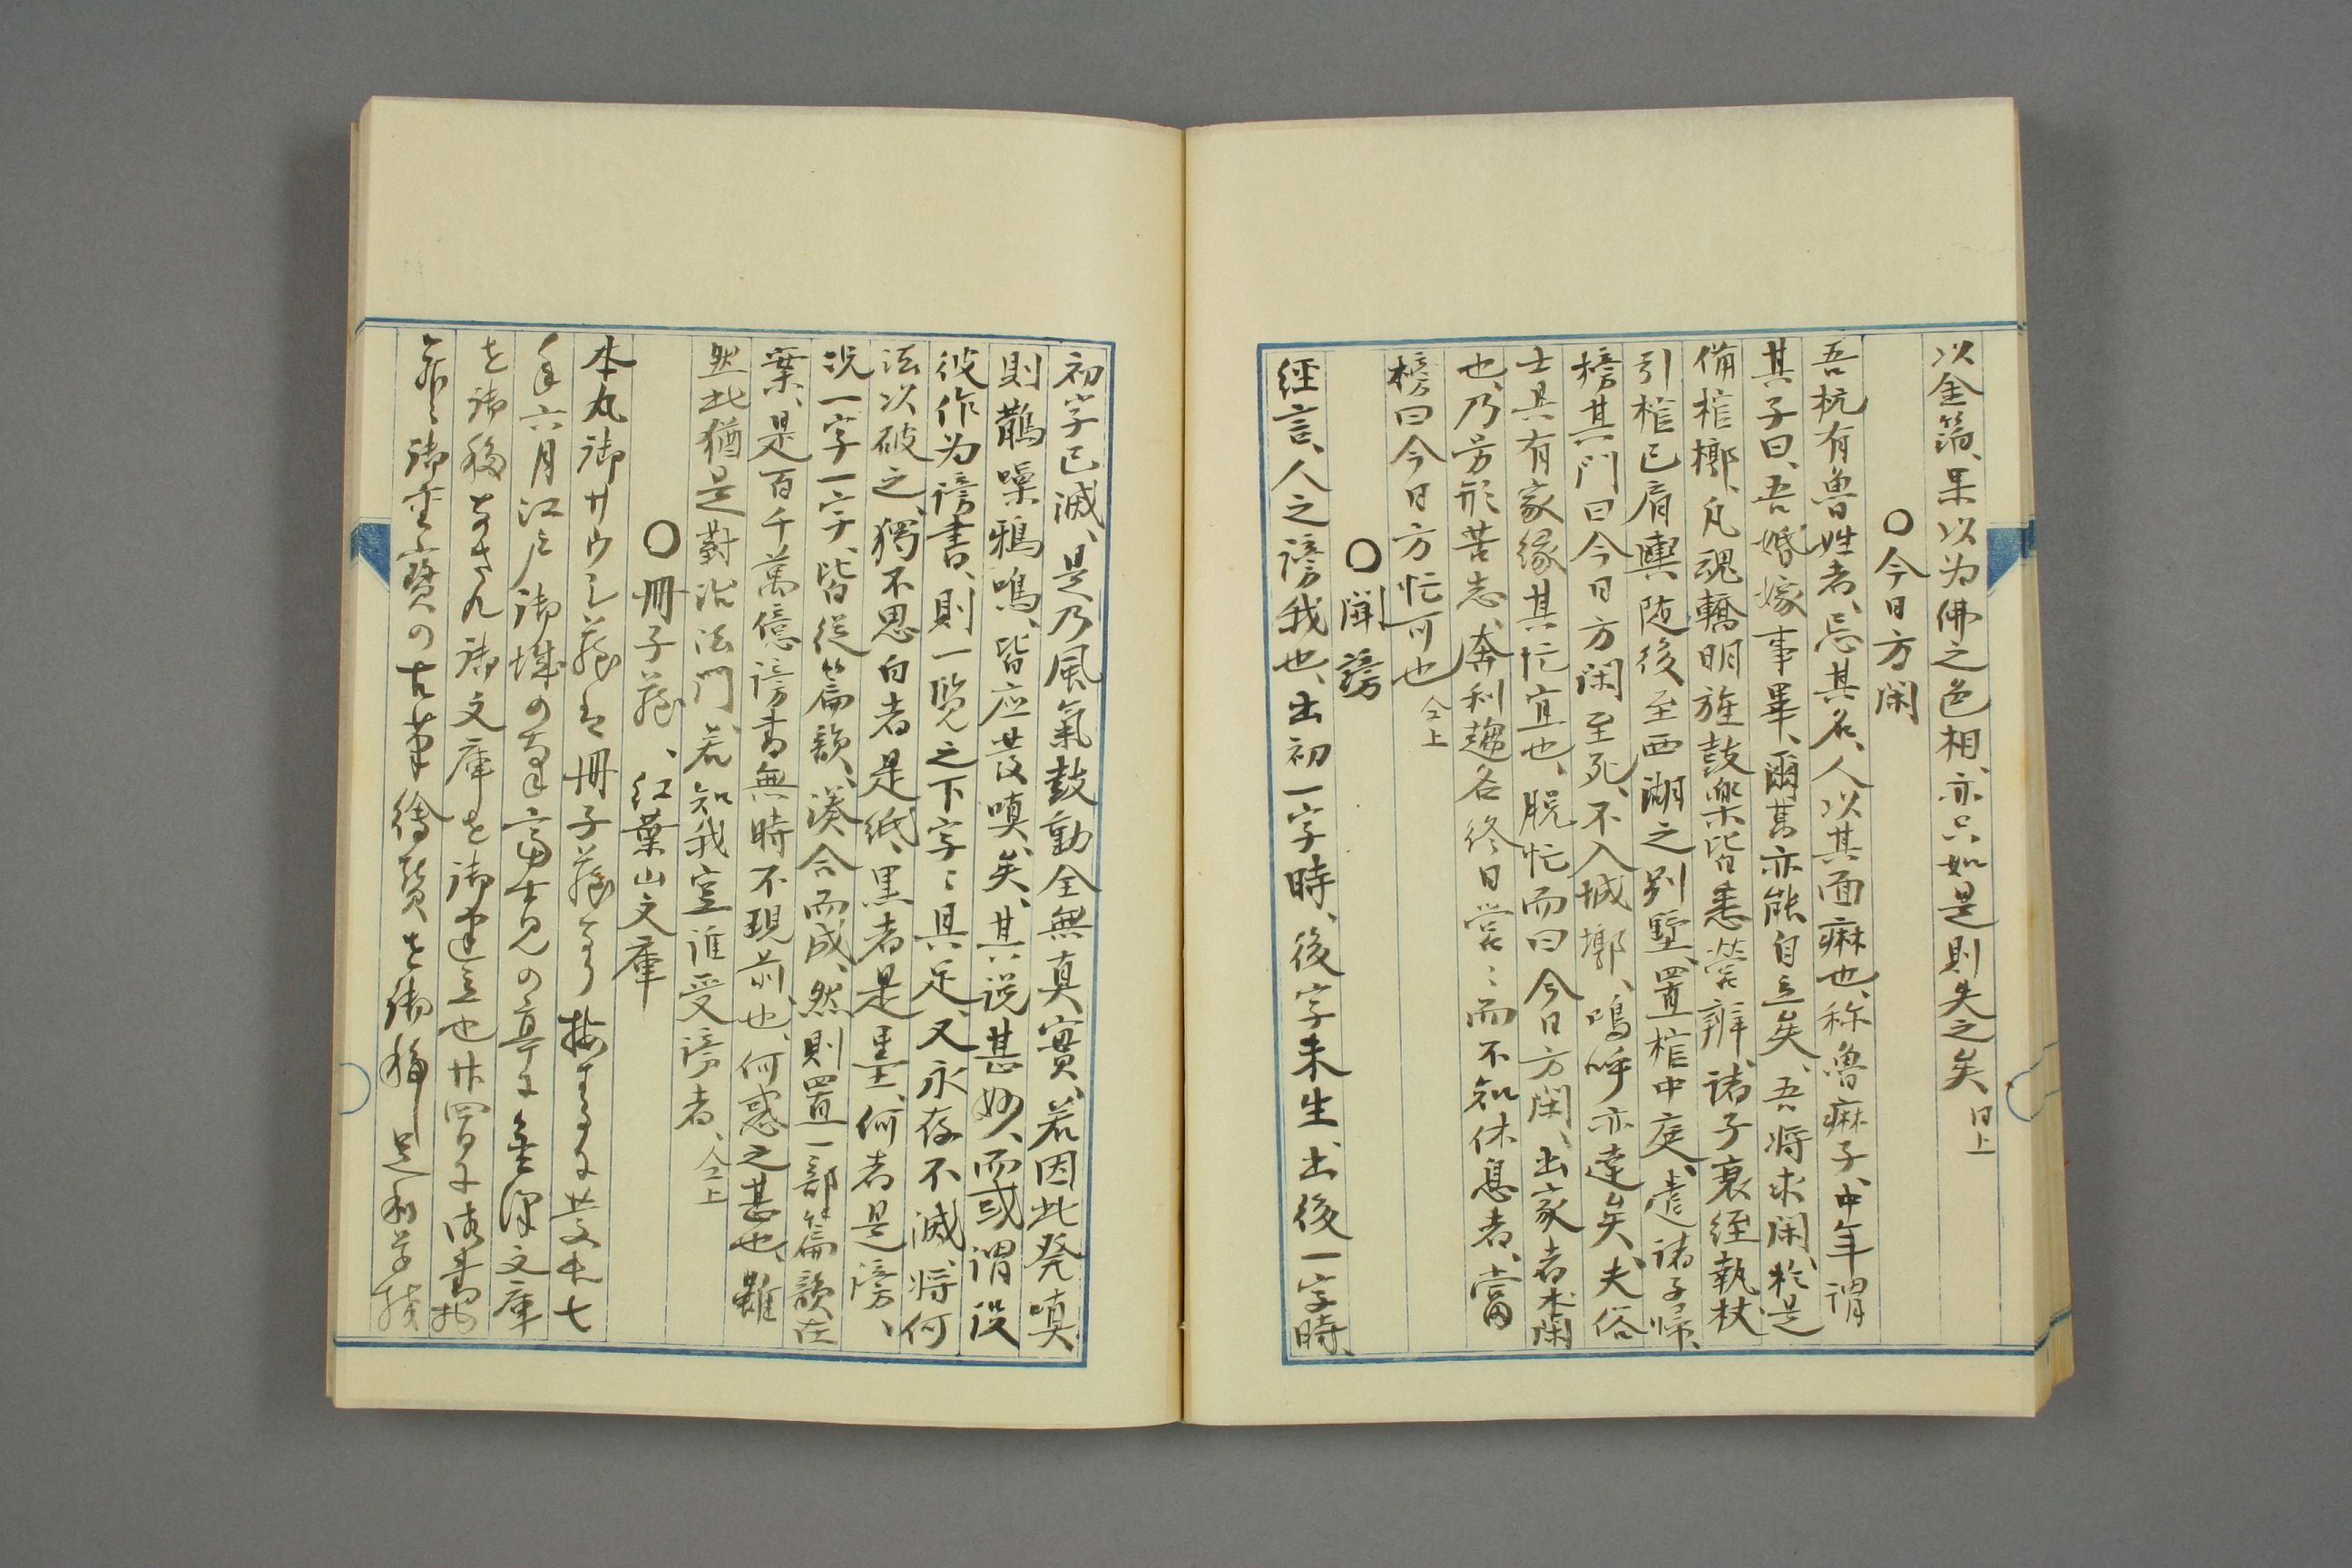 以金箔、果以为佛之色相、亦只如是則失之矣、同上
〇今日方閑
吾杭有魯姓者、忘其名、人以其面麻也、称魯麻子、中年謂
其子曰、吾婚嫁事畢、爾甚亦能自立矣、吾将求閑、於是
備棺槨、凡魂轎明旌鼓樂皆悉営辨、諸子衰絰執杖、
引棺已肩輿随後至西湖之別墅、置棺中庭、遣諸子帰、
榜其門曰今日方閑至死、不入城墎、嗚呼亦達矣、夫俗
士具有家縁其忙宜也、脱忙而曰今日方閑、出家者本閑
也、乃労形苦志、奔利趨名終日営〻而不知休息者、當
榜曰今日方忙可也 仝上
〇聞謗
經言、人之謗我也、出初一字時、後字未生、出後一字時、
初字已滅、是乃風氣鼓動全無真實、若因此発嗔
則鵲噪鴉鳴、皆应發嗔矣、其説甚妙、而或謂設
彼作为謗書、則一覧之下字〻具足、又永存不滅、将何
法以破之、獨不思白者是紙、黒者是墨、何者是謗、
况一字一字、皆從篇韻、湊合而成、然則置一部篇韻在
案、是百千萬億謗書無時不現前也、何惑之甚也、雖
然此猶是對治法門、若知我空誰受謗者、仝上
〇冊子蔵、紅葉山文庫
本丸御サウシ蔵は冊子蔵なり按するに慶長七
年六月江戸御城の富士見の亭に金澤文庫
を御移御文庫を御建立也
御重寳の古筆繪賛を御移し足利学校